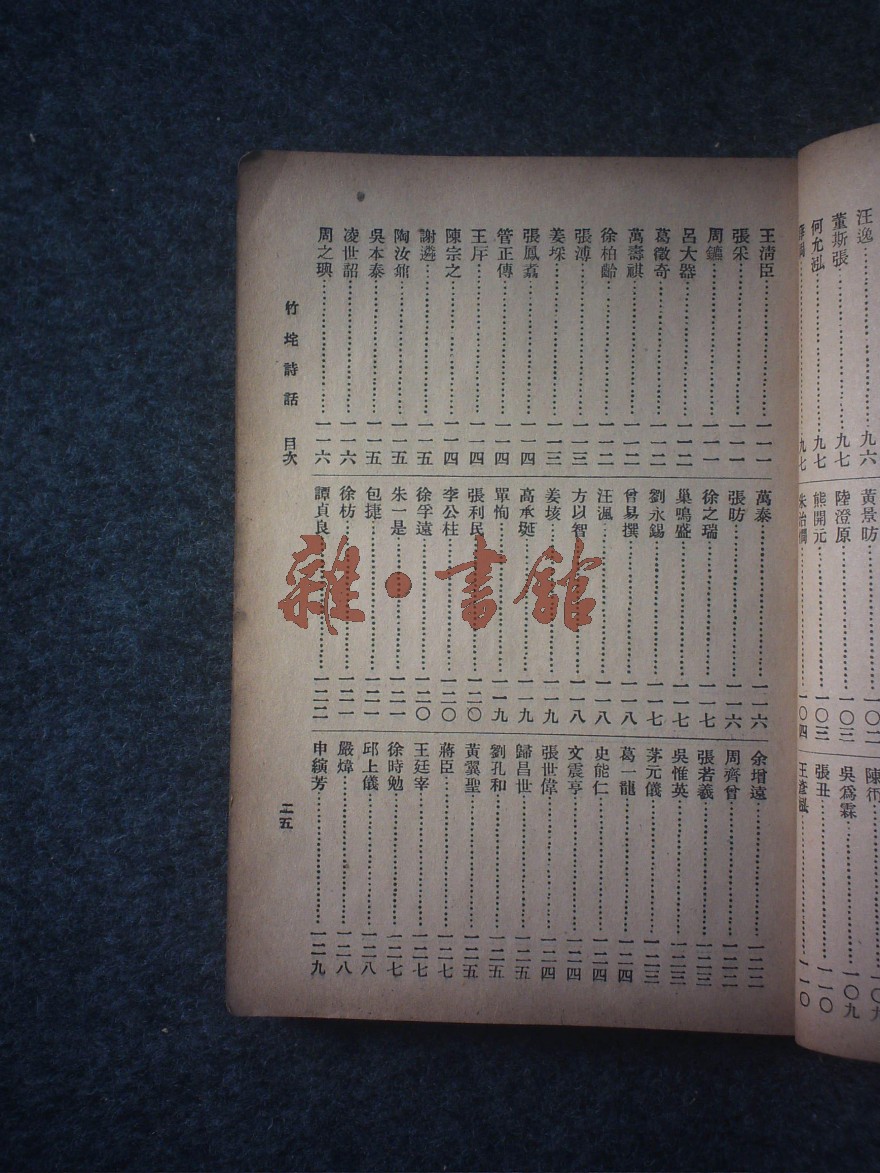 王淸臣 一一一
張采 一一一
周鑣 一一一
呂大器 一一二
葛徵奇 一一二
萬壽祺 一一二
徐柏齡 一一二
張溥 一一三
姜埰 一一三
張鳳翥 一一四
管正傳 一一四
王庌 一一四
陳宗之 一一四
謝遴 一一五
陶汝鼐 一一五
吳本泰 一一五
凌世韶 一一六
周之璵 一一六
萬泰 一一六
張昉 一一六
徐之瑞 一一七
巢鳴盛 一一七
劉永錫 一一七
曾易撰 一一八
汪渢 一一八
方以智 一一八
姜垓 一一九
高承埏 一一九
單恂 一一九
張利民 一二〇
李公柱 一二〇
徐孚遠 一二〇
朱一是 一二一
包捷 一二一
徐枋 一二一
譚貞良 一二二
余增遠 一二二
周齊曾 一二二
張若羲 一二三
吳惟英 一二三
茅元儀 一二三
葛一龍 一二四
史能仁 一二四
文震亨 一二四
張世偉 一二四
歸昌世 一二五
劉孔和 一二五
黃翼聖 一二五
蔣臣 一二七
王廷宰 一二七
徐時勉 一二七
邱上儀 一二八
嚴煒 一二八
申繽芳 一二九
竹垞詩話 目次
二五
汪逸 九六
董斯張 九七
何允泓 九七
九七
黃景昉 一〇二
陸澄原 一〇三
熊開元 一〇三
朱治憪 一〇四
陳衎 一〇九
吳爲霖 一〇九
張丑 一一〇
一一〇
雜·書館